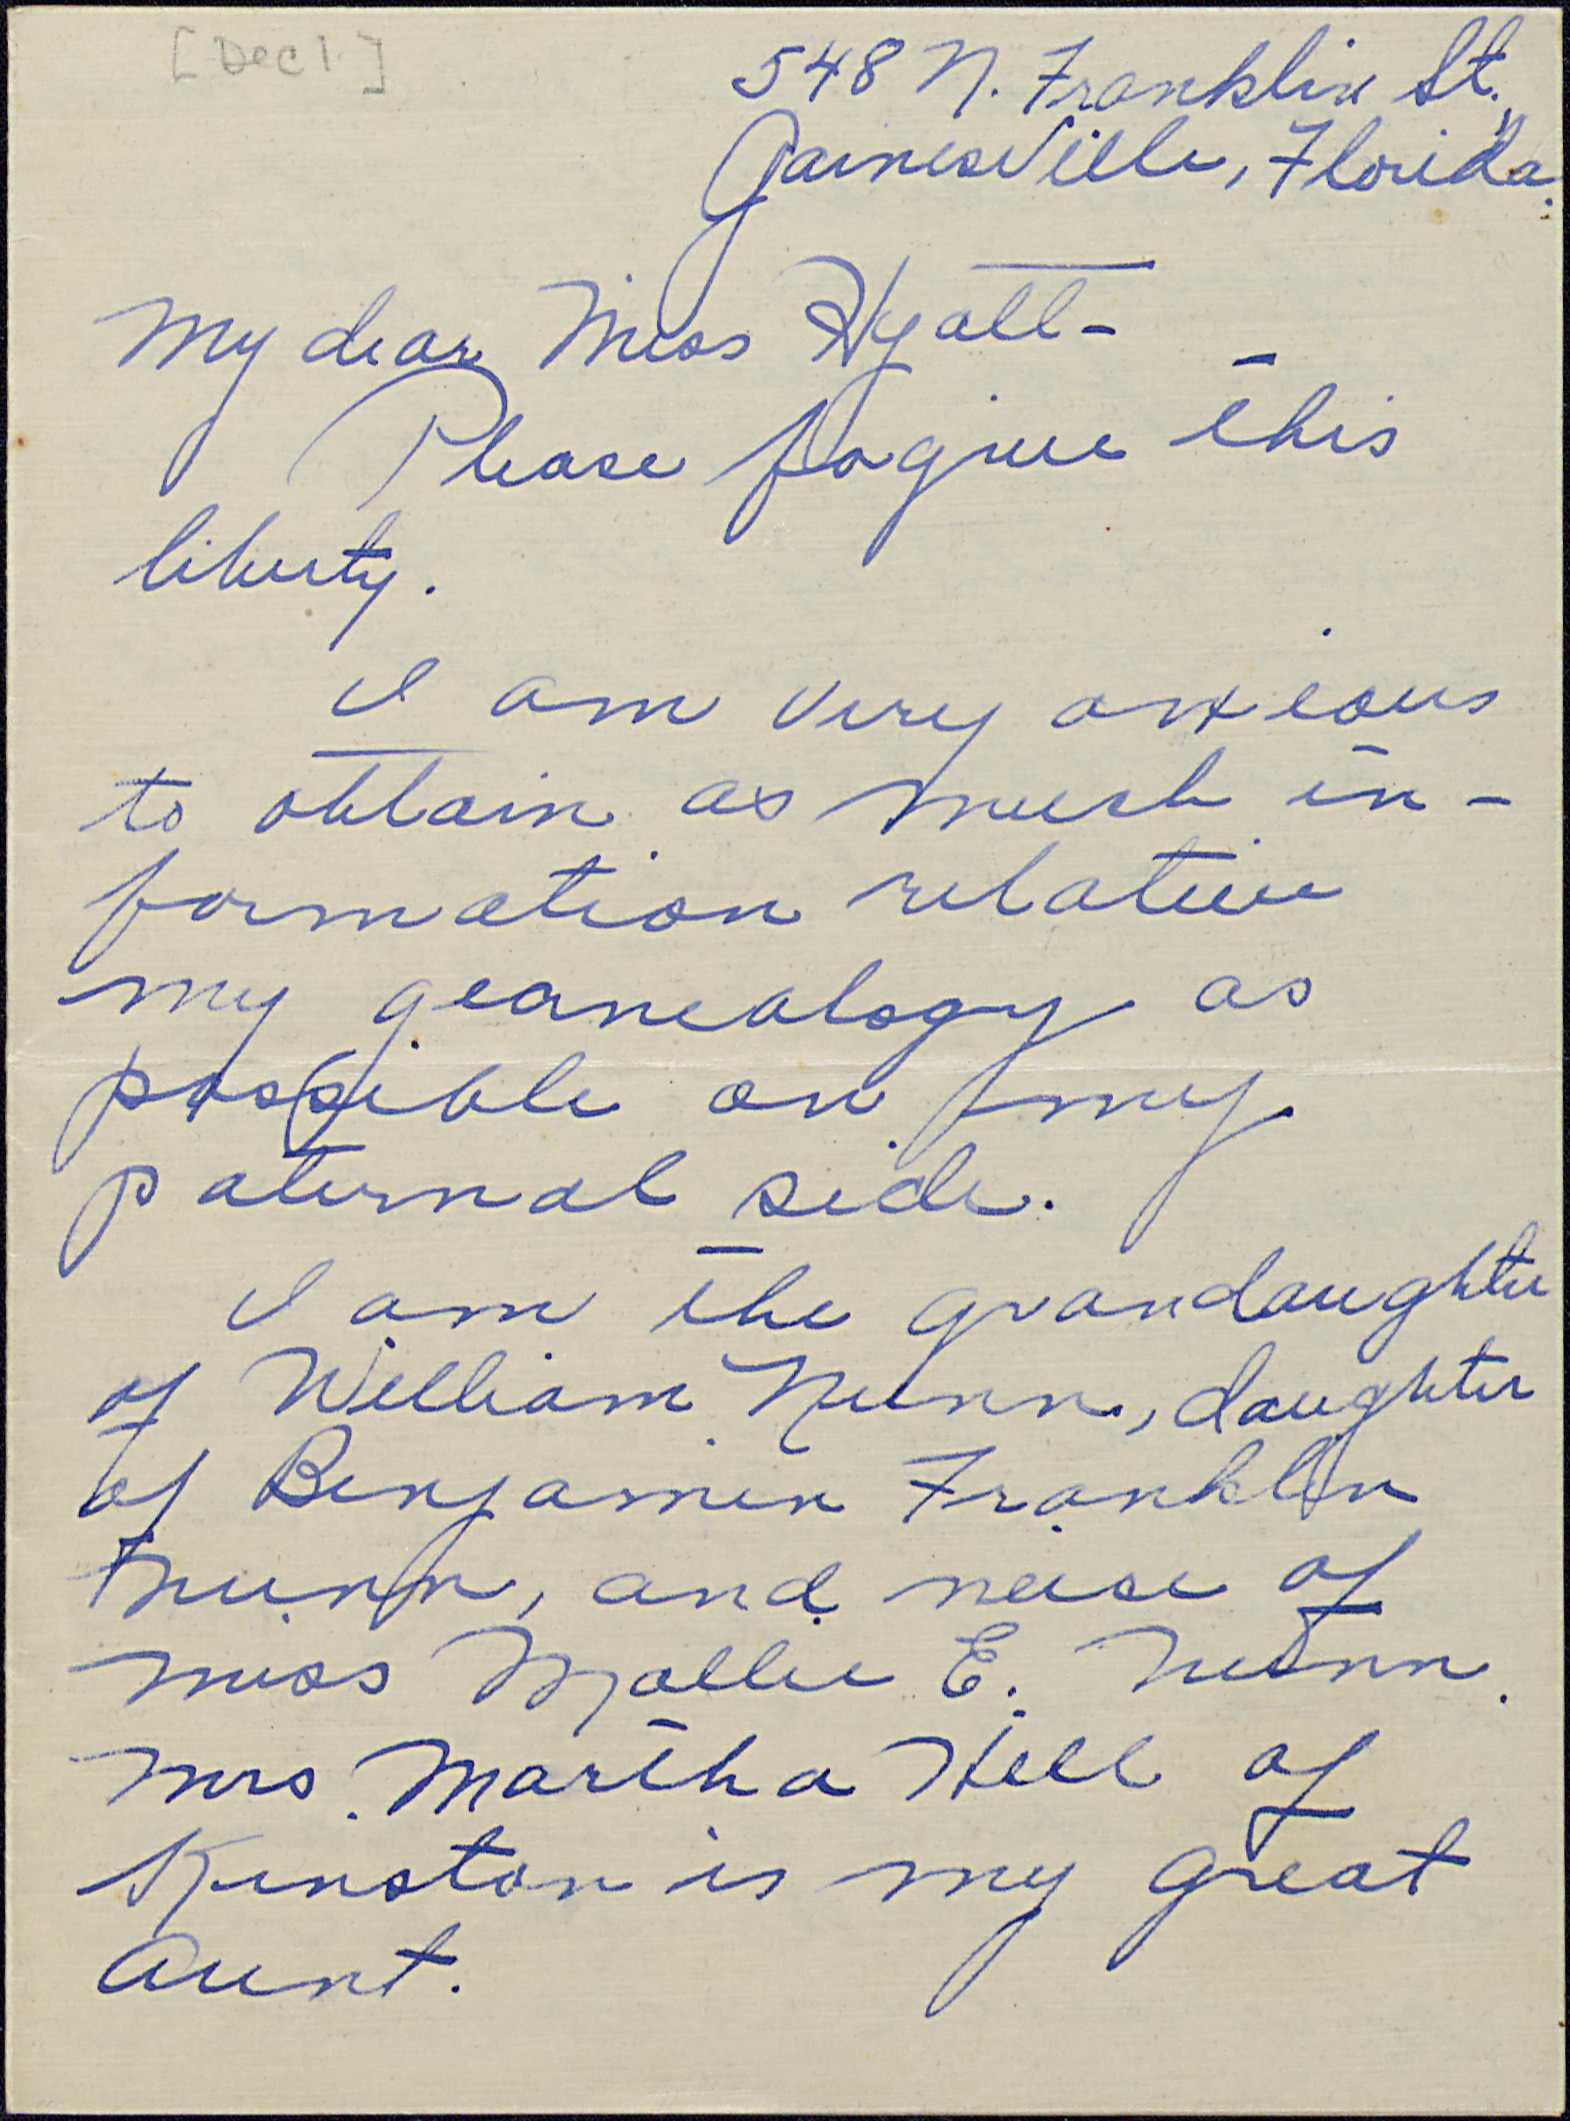 [Dec 1.]
548 N. Franklin St.,
Gainesville, Florida.
My dear Miss Hyatt-
Please fogive this
liberty.
I am very anxious
to obtain as much in-
formation relative
my geanealogy as
possible on my
paternal side.
I am the grandaughter
of William Nunn, daughter
of Benjamin Franklin
Nunn, and neice of
Miss Mollie E. Nunn.
Mrs. Martha Hill of
Kinston is my great
Aunt.